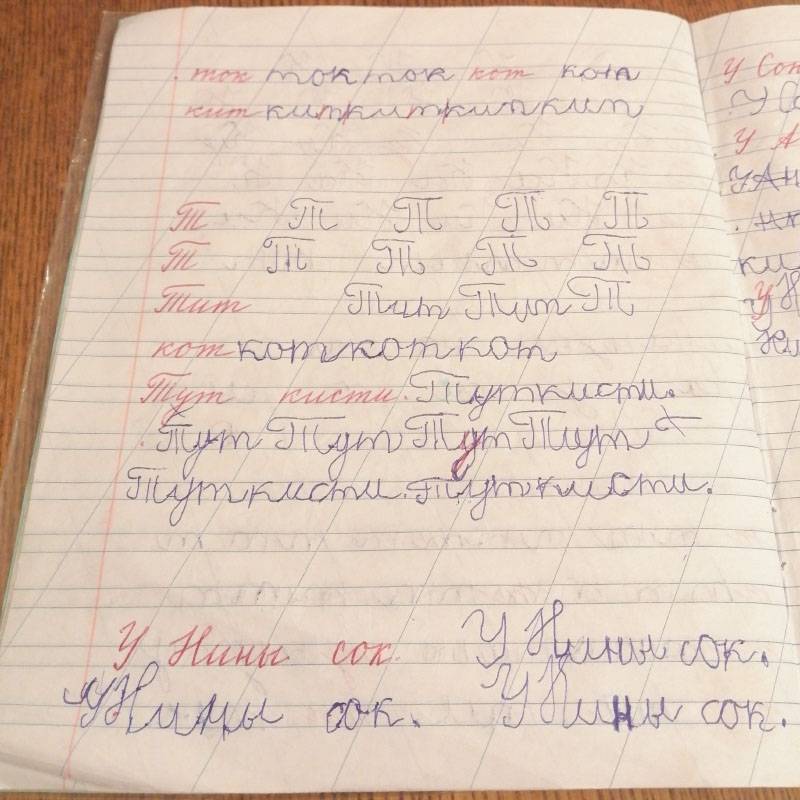 ток токток кот кота
кит киткиткипкип
Т Т Т Т Т
Т Т Т Т Т
Тит Тит Тит Т
кот коткоткот
Тут кисти. Туткисти.
Тут Тут Тут Тит
Туткисти. Туткисти.
У Нины сок. У Нины сок.
У Нины сок. У Нины сок.
У Сон
У А
УАн
ки
У Н